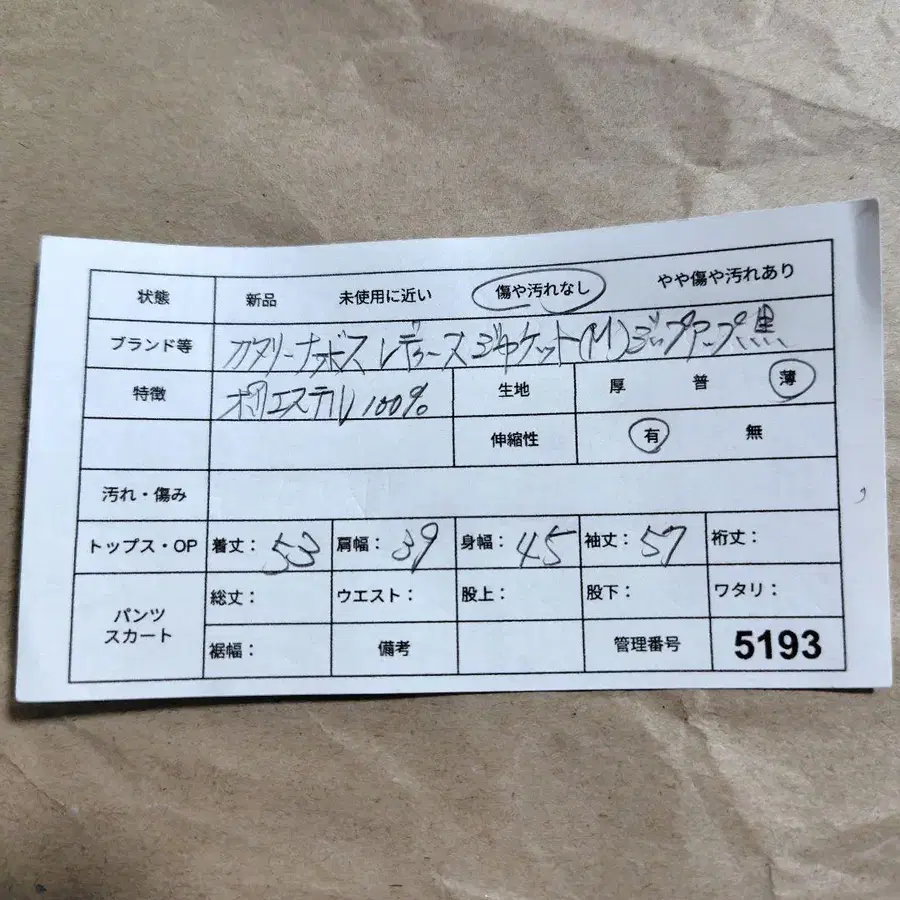 状態 新品 未使用に近い 傷や汚れなし やや傷や汚れあり
ブランド等 カタリーナボス レディース ジャケット(M)ジップアップ 黒
特徴 ポリエステル100% 生地 厚 普 薄
伸縮性 有 無
汚れ・傷み
トップス・OP 着丈: 53 肩幅: 39 身幅: 45 袖丈: 57 裄丈:
パンツ スカート
総丈: ウエスト: 股上: 股下: ワタリ:
裾幅: 備考 管理番号 5193